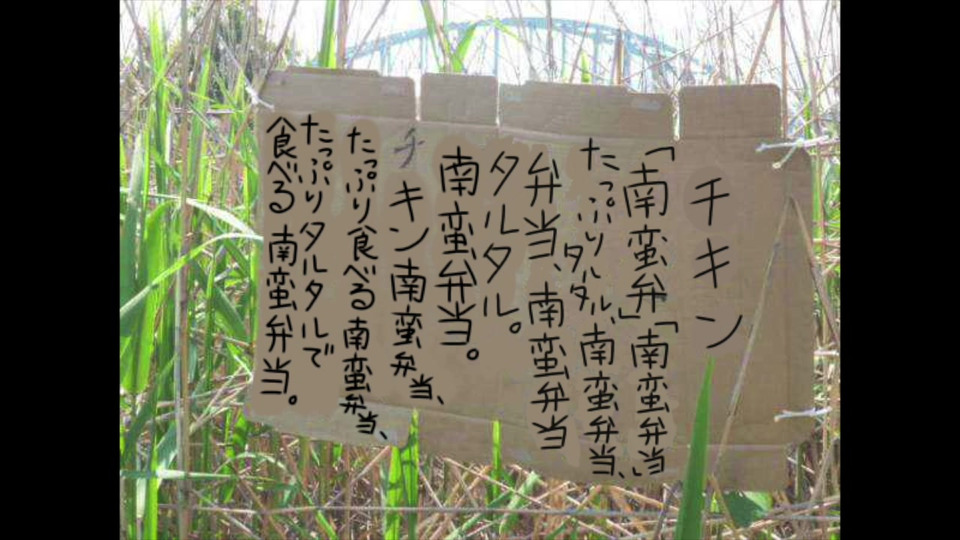 チキン
「南蛮弁」「南蛮弁当」
たっぷりタルタル、南蛮弁当、
弁当、南蛮弁当
タルタル。
南蛮弁当。
チキン南蛮弁当、
たっぷり食べる南蛮弁当、
たっぷりタルタルで
食べる南蛮弁当。